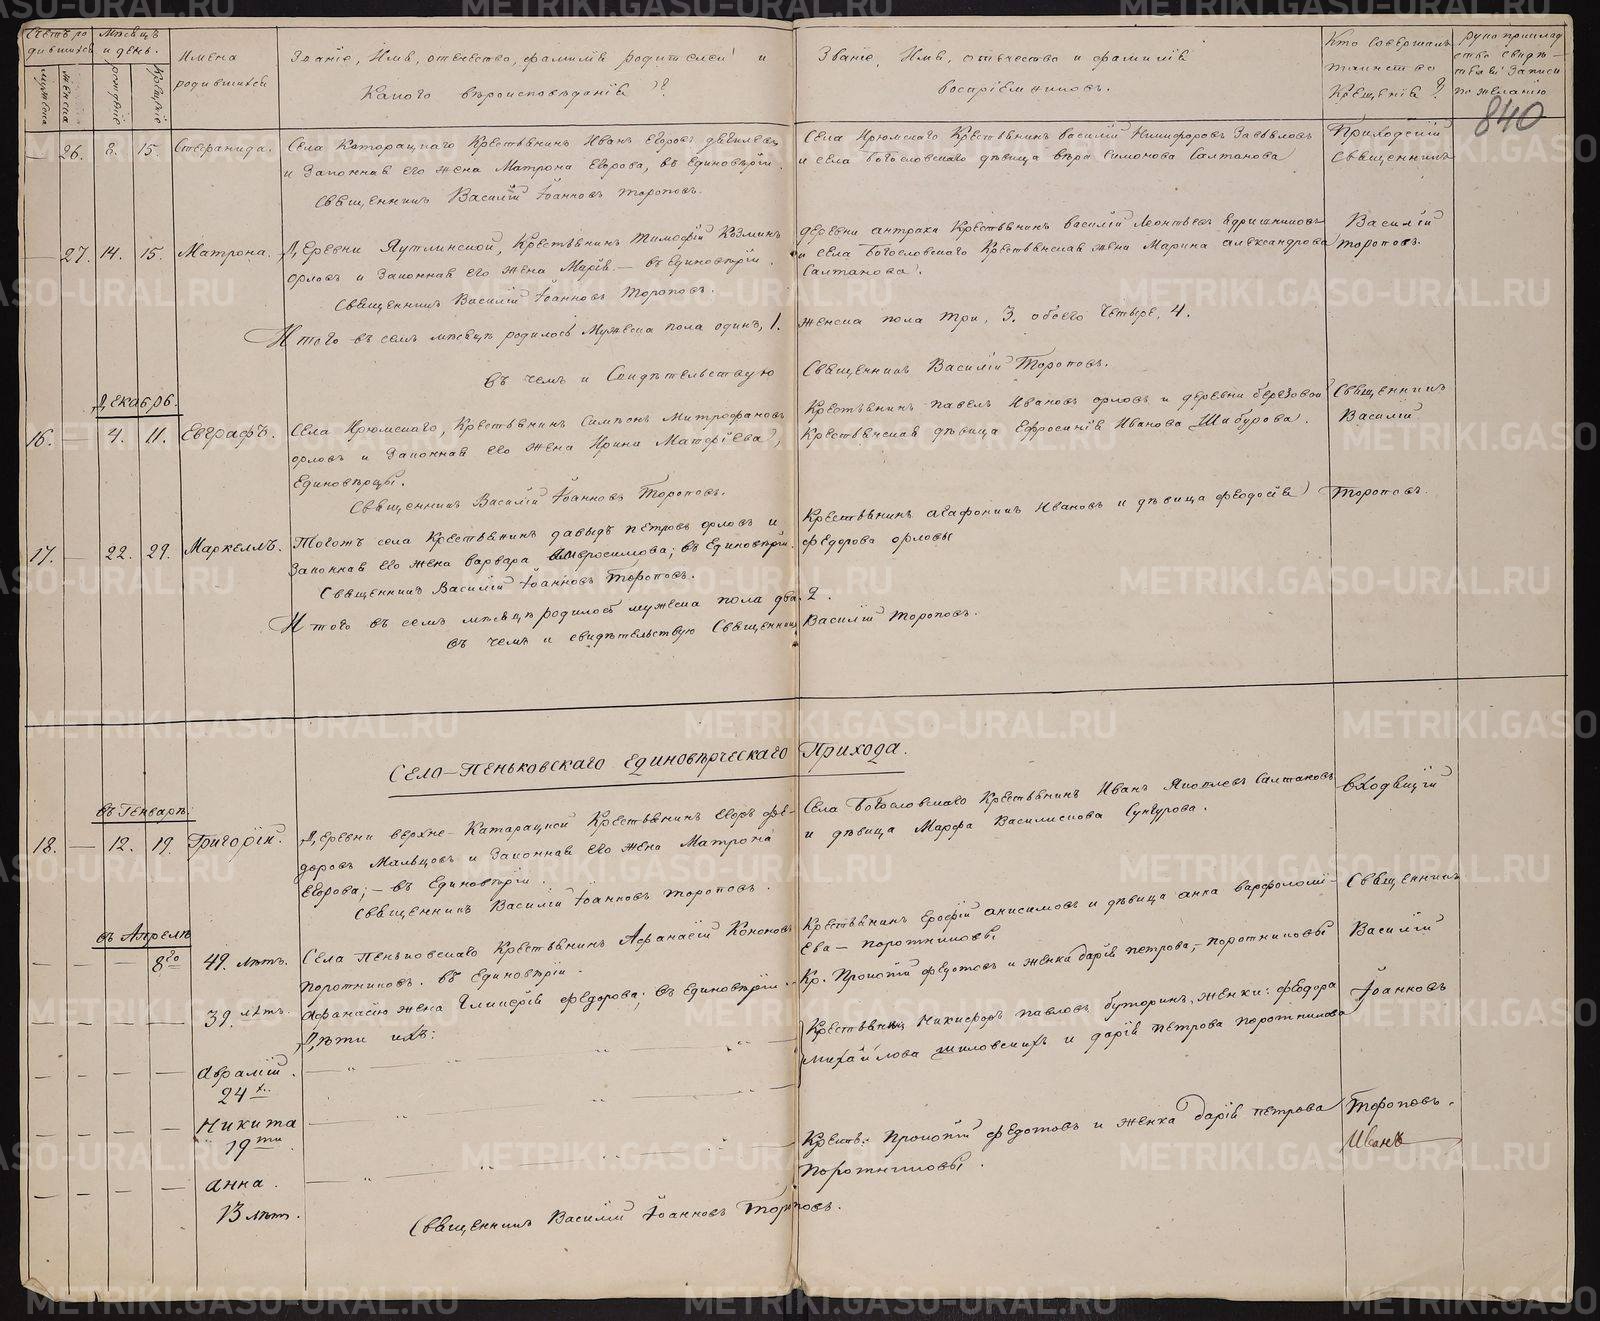 Счетъ родившихся
Мѣсяцъ и день.
мужеска
женска
рожденіе
крещеніе
Имена родившихся
Званіе, Имя, отечество, фамилія родителей и
Какого вѣроисповѣданія?
Званіе, Имя, отечество и фамилія
восприемниковъ.
Кто совершалъ
таинство
Крещенія?
рукоприклад
ство свидѣ-
телей записи
по желанію
840
— 26. 8. 15. Стефанида.
Села Катарацкаго Крестьянинъ Иванъ Егоровъ
и Законная его жена Матрона Егорова, въ Единовѣріи.
Священникъ Василій Іоанновъ Тороповъ.
Села Ирюмскаго Крестьянинъ василій Никифоровъ Завьяловъ
и села Богословскаго дѣвица вѣра Симонова Салтанова
Приходскій
священникъ
— 27. 14. 15. Матрона.
Деревни Яутлинской, Крестьянинъ Тимофій Козминъ
орловъ и Законная его жена Марія. — въ единовѣріи.
Священникъ Василій Іоанновъ Тороповъ.
деревни антрака Крестьянинъ василій Леонтьевъ
и села Богословскаго Крестьянская жена Марина александрова
Салтанова.
Василій
тороповъ.
Итого въ семъ мѣсяцѣ родилось Мужеска пола одинъ, 1. женска пола три, 3. обоего Четыре, 4.
въ чемъ и Свидѣтельствую Священникъ Василій Тороповъ.
Декабрь.
16. — 4. 11. Евграфъ.
Села Ирюмскаго, Крестьянинъ Симеонъ Митрофановъ
орловъ и Законная его жена Ирина Матфіева,
Единовѣрцы.
Священникъ Василій Іоанновъ Тороповъ.
Крестьянинъ павелъ Ивановъ орловъ и деревни березовой
Крестьянская дѣвица Ефросинія Иванова Шабурова.
Священникъ
Василій
17. — 22. 29. Маркеллъ.
Тогожъ села Крестьянинъ давыдъ петровъ орловъ и
Законная его жена варвара амвросимова; въ Единовѣріи.
Священникъ Василій Іоанновъ Тороповъ.
Крестьянинъ агафоникъ Ивановъ и дѣвица феодосія
федорова орловы
Тороповъ.
Итого въ семъ мѣсяцѣ родилось мужеска пола два. 2.
въ чемъ и свидѣтельствую Священникъ Василій Тороповъ.
Село-Пеньковскаго Единовѣрческаго Прихода.
въ Генварѣ:
18. — 12. 19. Григорій.
Деревни верхне-Катарацкой Крестьянинъ Егоръ фе-
доровъ Мальцовъ и Законная его жена Матрона
Егорова; — въ Единовѣріи.
Священникъ Василій Іоанновъ тороповъ.
Села Богословскаго Крестьянинъ Иванъ Яковлевъ Салтановъ
и дѣвица Марфа Василискова Сунгурова.
въ Апрелѣ
— — — 8го 49. лѣтъ.
Села Пеньковскаго Крестьянинъ Афанасій Кононовъ
поротниковъ. въ Единовѣріи.
Крестьянинъ Ерофій анисимовъ и дѣвица анна варфоломі-
Ева — поротниковы
Священникъ
— — — — 39. лѣтъ.
Афанасію жена Гликерія федорова; въ единовѣріи.
Кр. Прокопій федотовъ и женка дарія петрова, — поротниковы
Василій
Дѣти ихъ:
— — — — Авраамій.
24 х.
Крестьянинъ Никифоръ павловъ буторинъ, женки: федора
михайлова шиловскихъ и дарія петрова поротникова
Іоанновъ
— — — — Никита
19ти
— — — — анна.
13 лѣтъ.
Крестьь: Прокопій федотовъ и женка дарія петрова
Поротниковы.
Тороповъ.
Иванъ
Священникъ Василій Іоанновъ Тороповъ.
METRIKI.GASO-URAL.RU